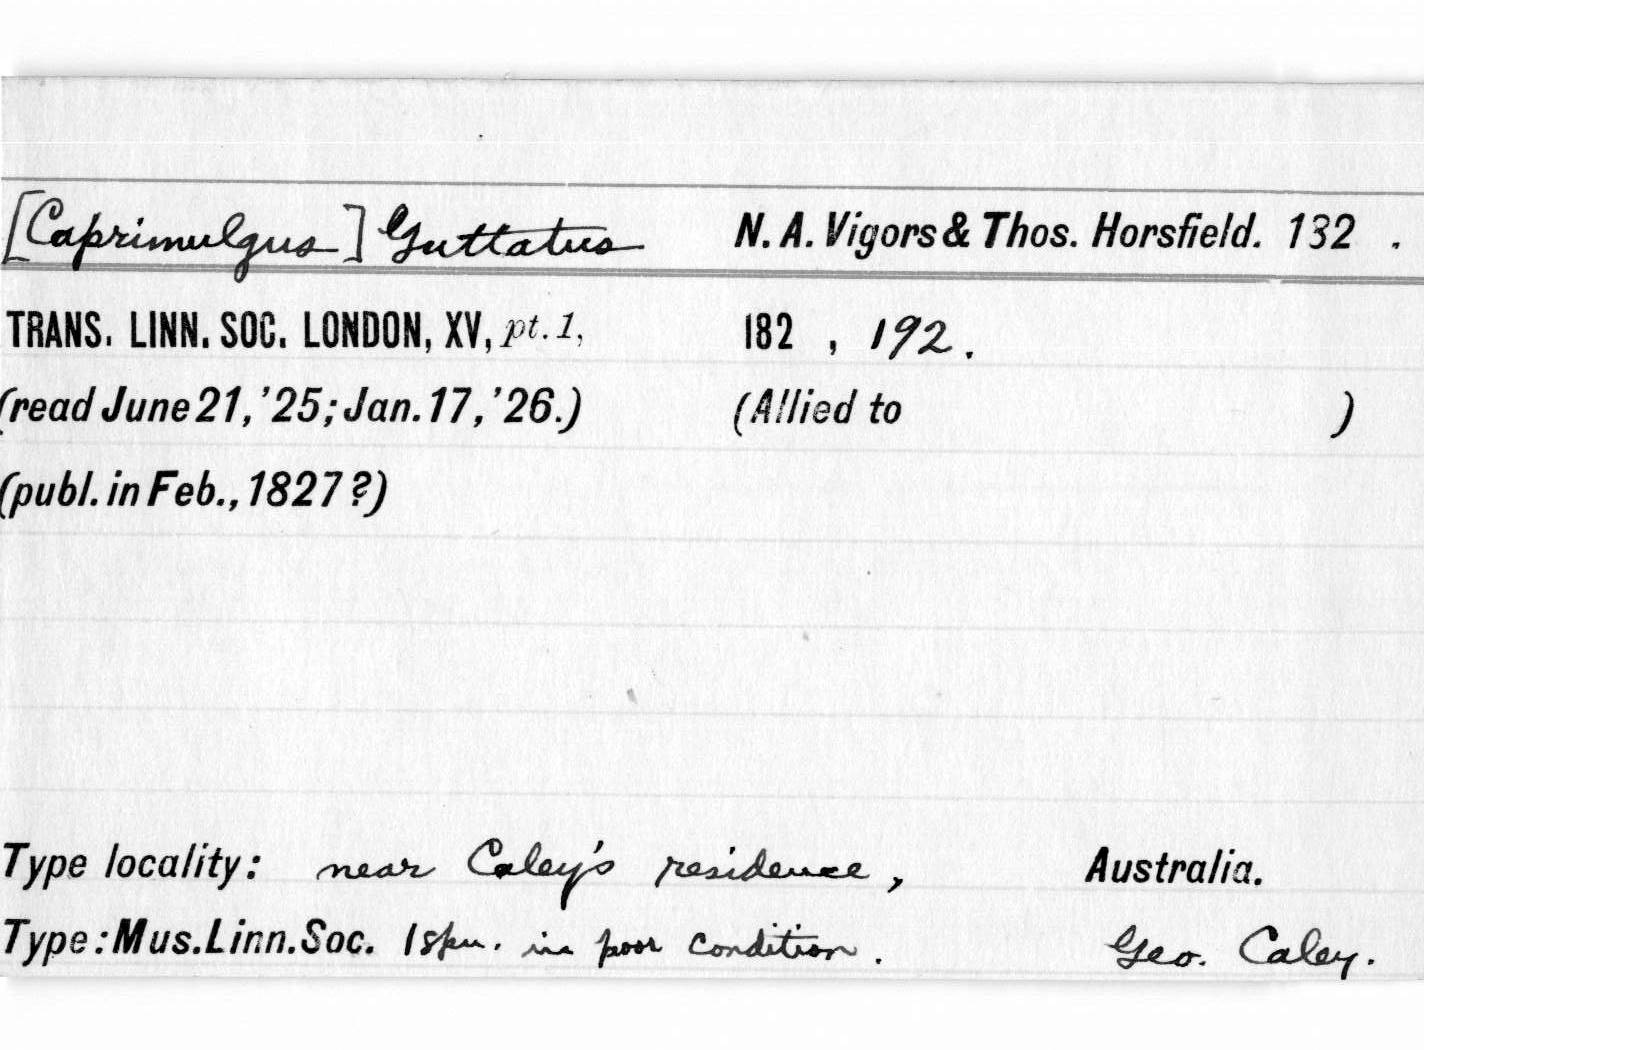 [Caprimulgus] Guttatus N. A. Vigors & Thos. Horsfield. 132 .
TRANS. LINN. SOC. LONDON, XV, pt. 1, 182 , 192.
(read June 21, '25; Jan. 17, '26.) (Allied to )
(publ. in Feb., 1827 ?)
Type locality: near Caley's residence, Australia.
Type: Mus. Linn. Soc. 1 spn. in poor condition. Geo. Caley.